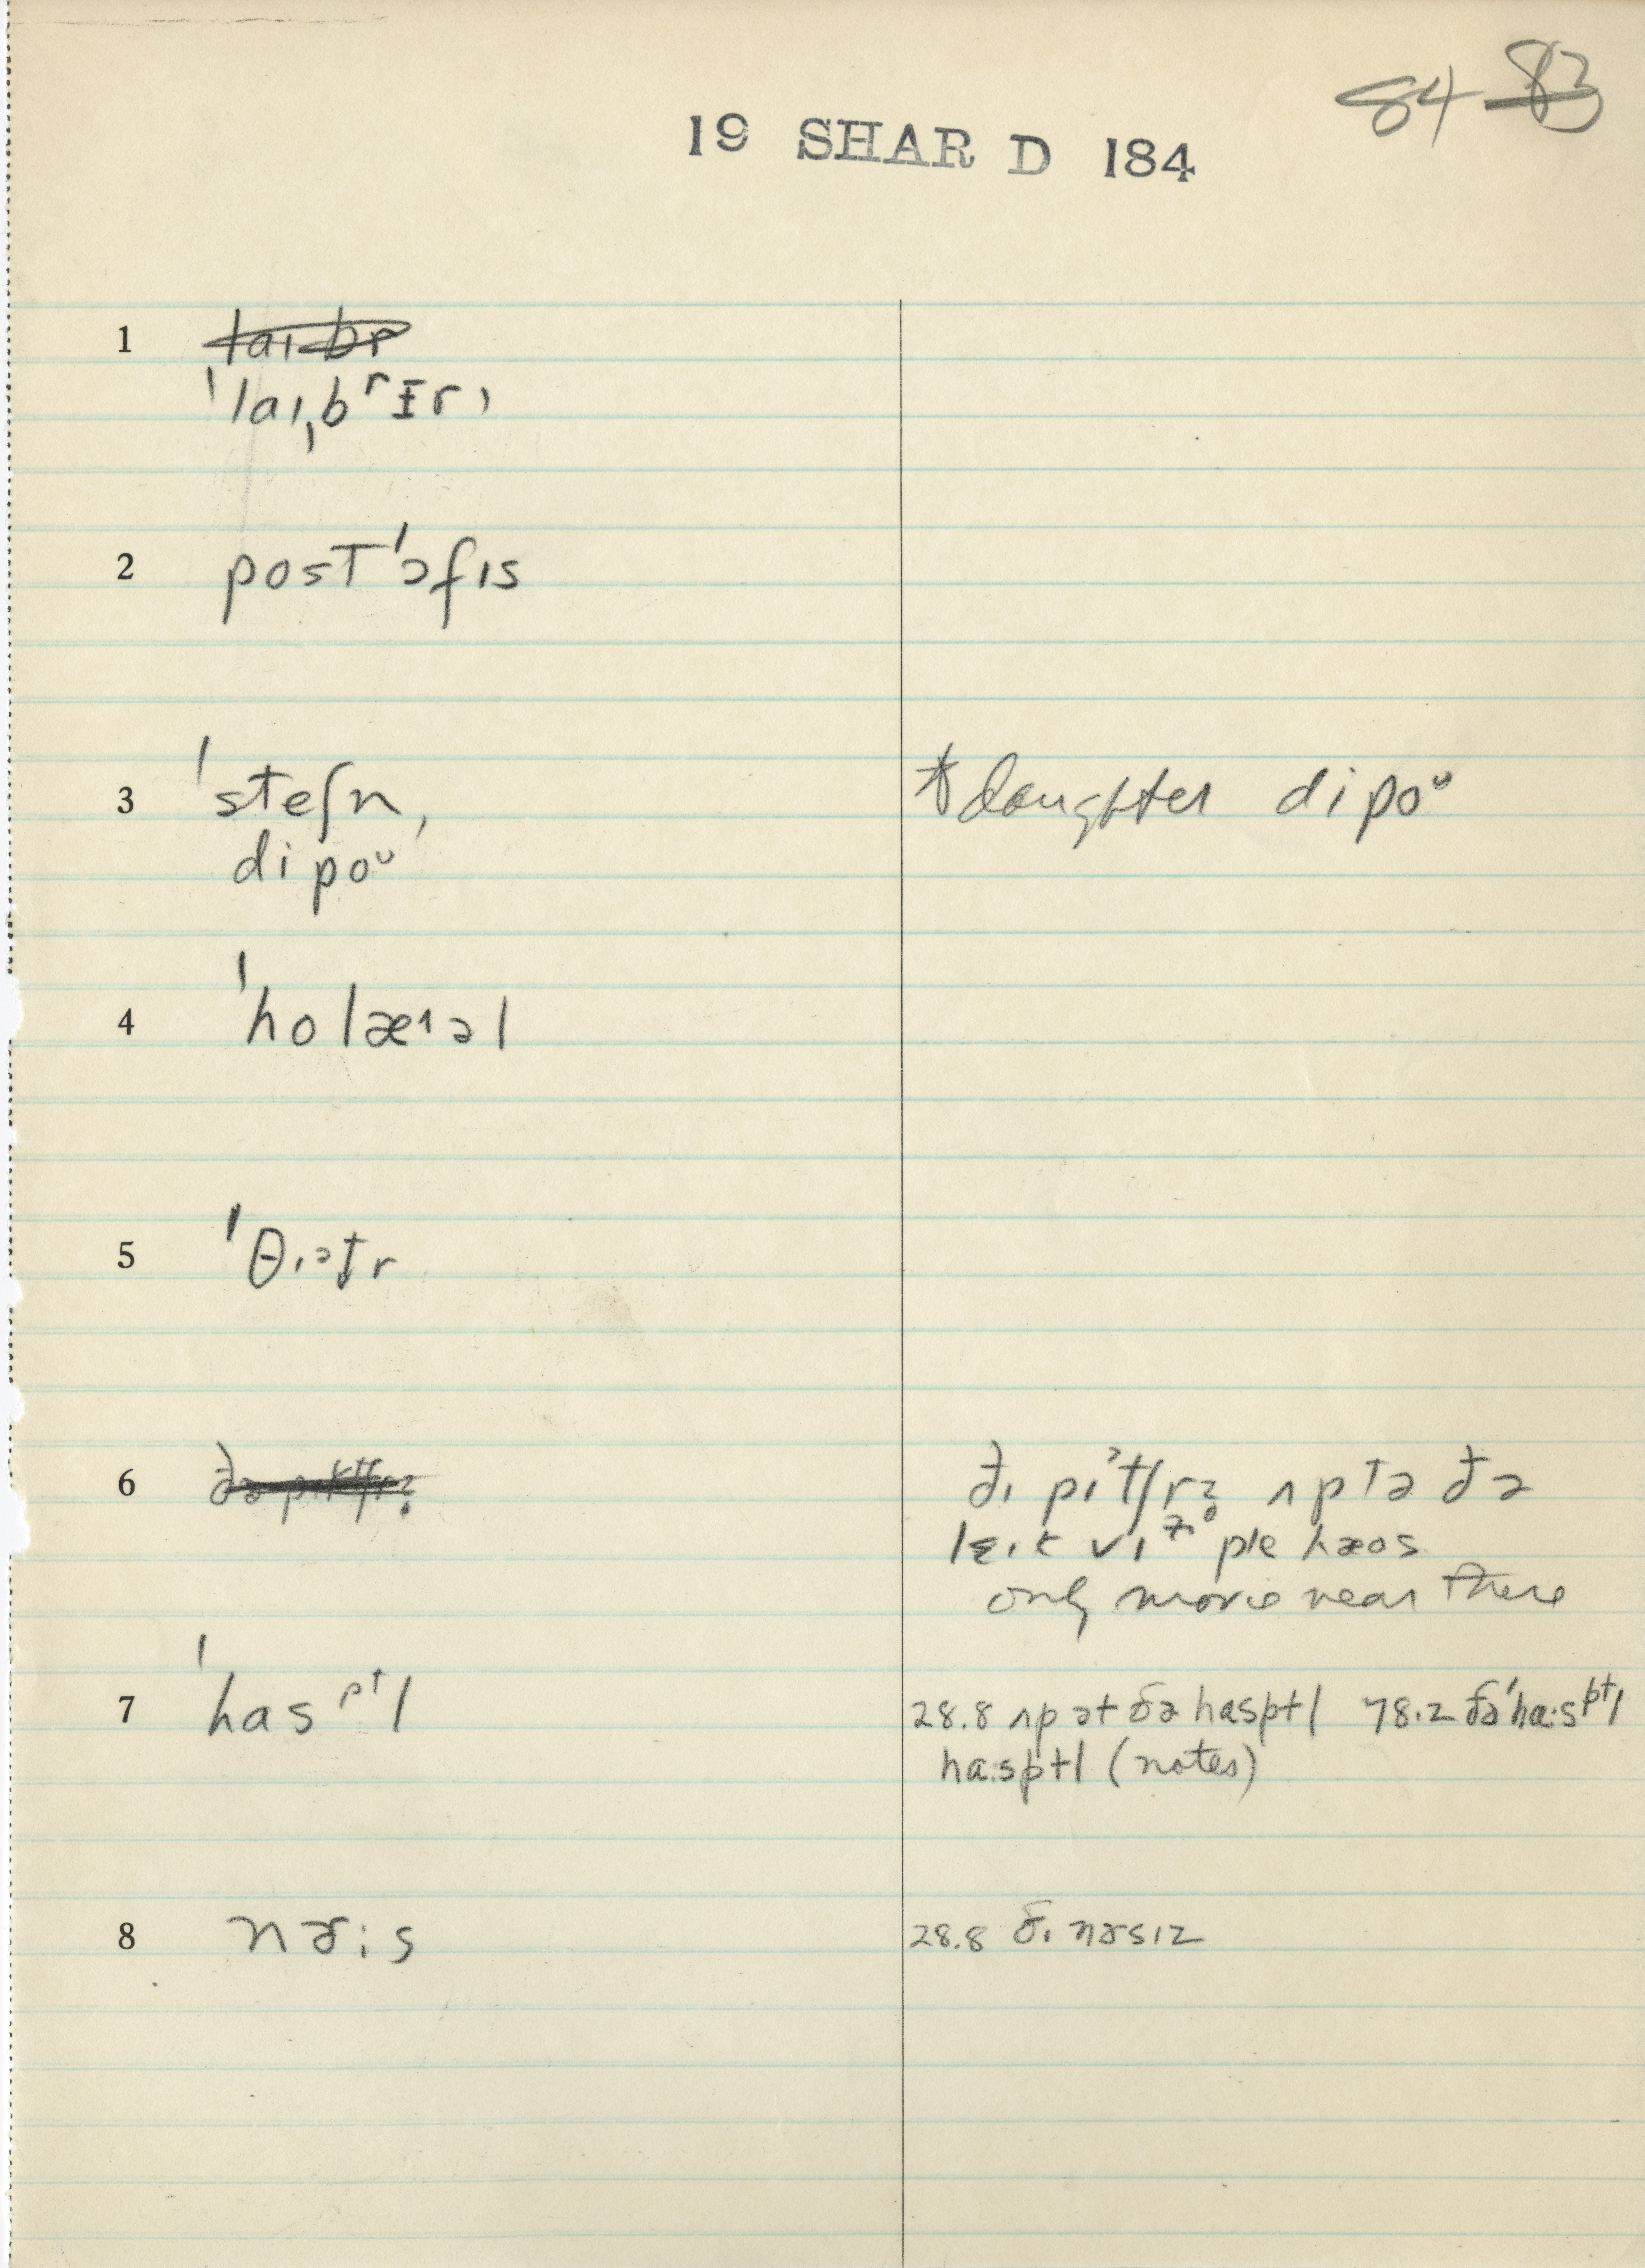 84 83
19 SHAR D 184
1 laɪbr
ˈlaɪˌbrɪri
2 postˈɔfɪs
3 ˈsteʃn, † daughter dipoᵘ
dipoᵘ
4 ˈholæɪəl
5 ˈθɪətr
6 ðə ðɪ pɪˀtʃrz ʌptə ðə
lɛɪk vɪᶻ pleɪhæos
only movie near there
7 ˈhasᵖᵗl 28.8 ʌp ət ðə hasptl 78.2 ðəˈha:sᵖᵗl
ha:sptl (notes)
8 nɚ:s 28.8 ðɪ nɚsɪz